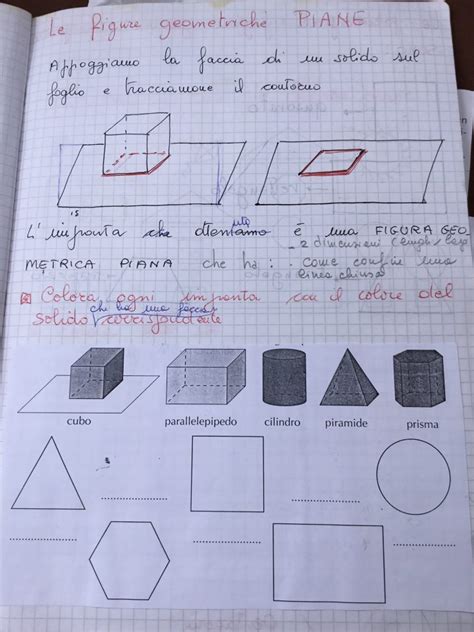 Le figure geometriche PIANE
Appoggiamo la faccia di un solido sul
foglio e tracciamone il contorno
L'impronta che ottenuta è una FIGURA GEO
- 2 dimensioni
METRICA PIANA che ha: . come confine una
linea chiusa
Colora ogni impronta con il colore del
che ha una faccia
solido corrispondente
cubo parallelepipedo cilindro piramide prisma